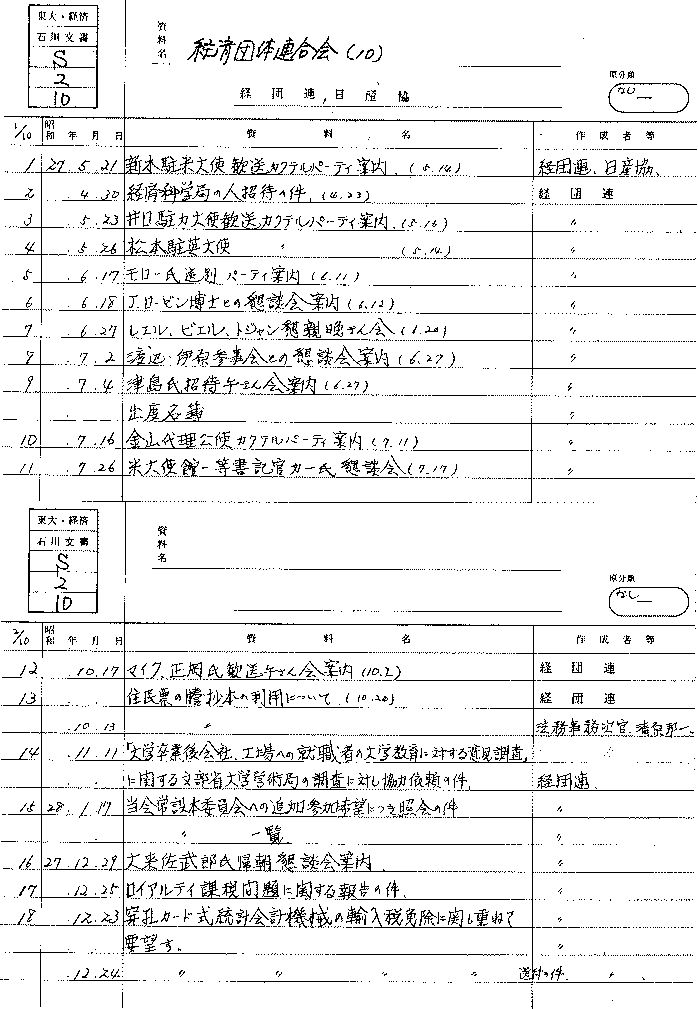 東大・経済
石川文書
S
2
10
資料名 経済団体連合会 (10)
経団連, 日産協
原分類
なし
1/10 昭和 年 月 日 資料名 作成者等
1 27. 5. 21 新木駐米大使歓送カクテルパーティ案内. (5.14) 経団連、日産協、
2 . 4. 30 経済科学局の人招待の件. (4.23) 経団連
3 . 5. 23 井口駐カ大使歓送カクテルパーティ案内. (5.13) 〃
4 . 5. 26 松本駐英大使 〃 (5.14) 〃
5 . 6. 17 モロー氏送別パーティ案内 (6.11) 〃
6 . 6. 18 J.ロービン博士との懇談会案内 (6.12) 〃
7 . 6. 27 レエル、ビエル、トジャン懇親晩さん会 (6.20) 〃
8 . 7. 2 渡辺・伊原参事会との懇談会案内 (6.27) 〃
9 . 7. 4 津島氏招待午さん会案内 (6.27) 〃
出席名簿 〃
10 . 7. 16 金山代理公使カクテルパーティ案内 (7.11) 〃
11 . 7. 26 米大使館一等書記官カー氏懇談会 (7.17) 〃
東大・経済
石川文書
S
2
10
資料名
原分類
なし
2/10 昭和 年 月 日 資料名 作成者等
12 . 10. 17 マイク.正岡氏歓送午さん会案内 (10.2) 経団連
13 住民票の謄抄本の利用について. (10.20) 経団連
10. 13 〃 法務事務次官、清原邦一、
14 . 11. 11 「大学卒業後会社、工場への就職者の大学教育に対する意見調査」
に関する文部省大学学術局の調査に対し協力依頼の件. 経団連
15 28. 1. 17 当会常設本委員会への追加参加希望につき照会の件 〃
〃 一覧 〃
16 27. 12. 29 大来佐武郎氏帰朝懇談会案内. 〃
17 . 12. 25 ロイアルティ課税問題に関する報告の件. 〃
18 12. 23 穿孔カード式統計会計機械の輸入税免除に関し重ねて
要望す. 〃
. 12. 24 〃 〃 〃 〃 送付の件. 〃